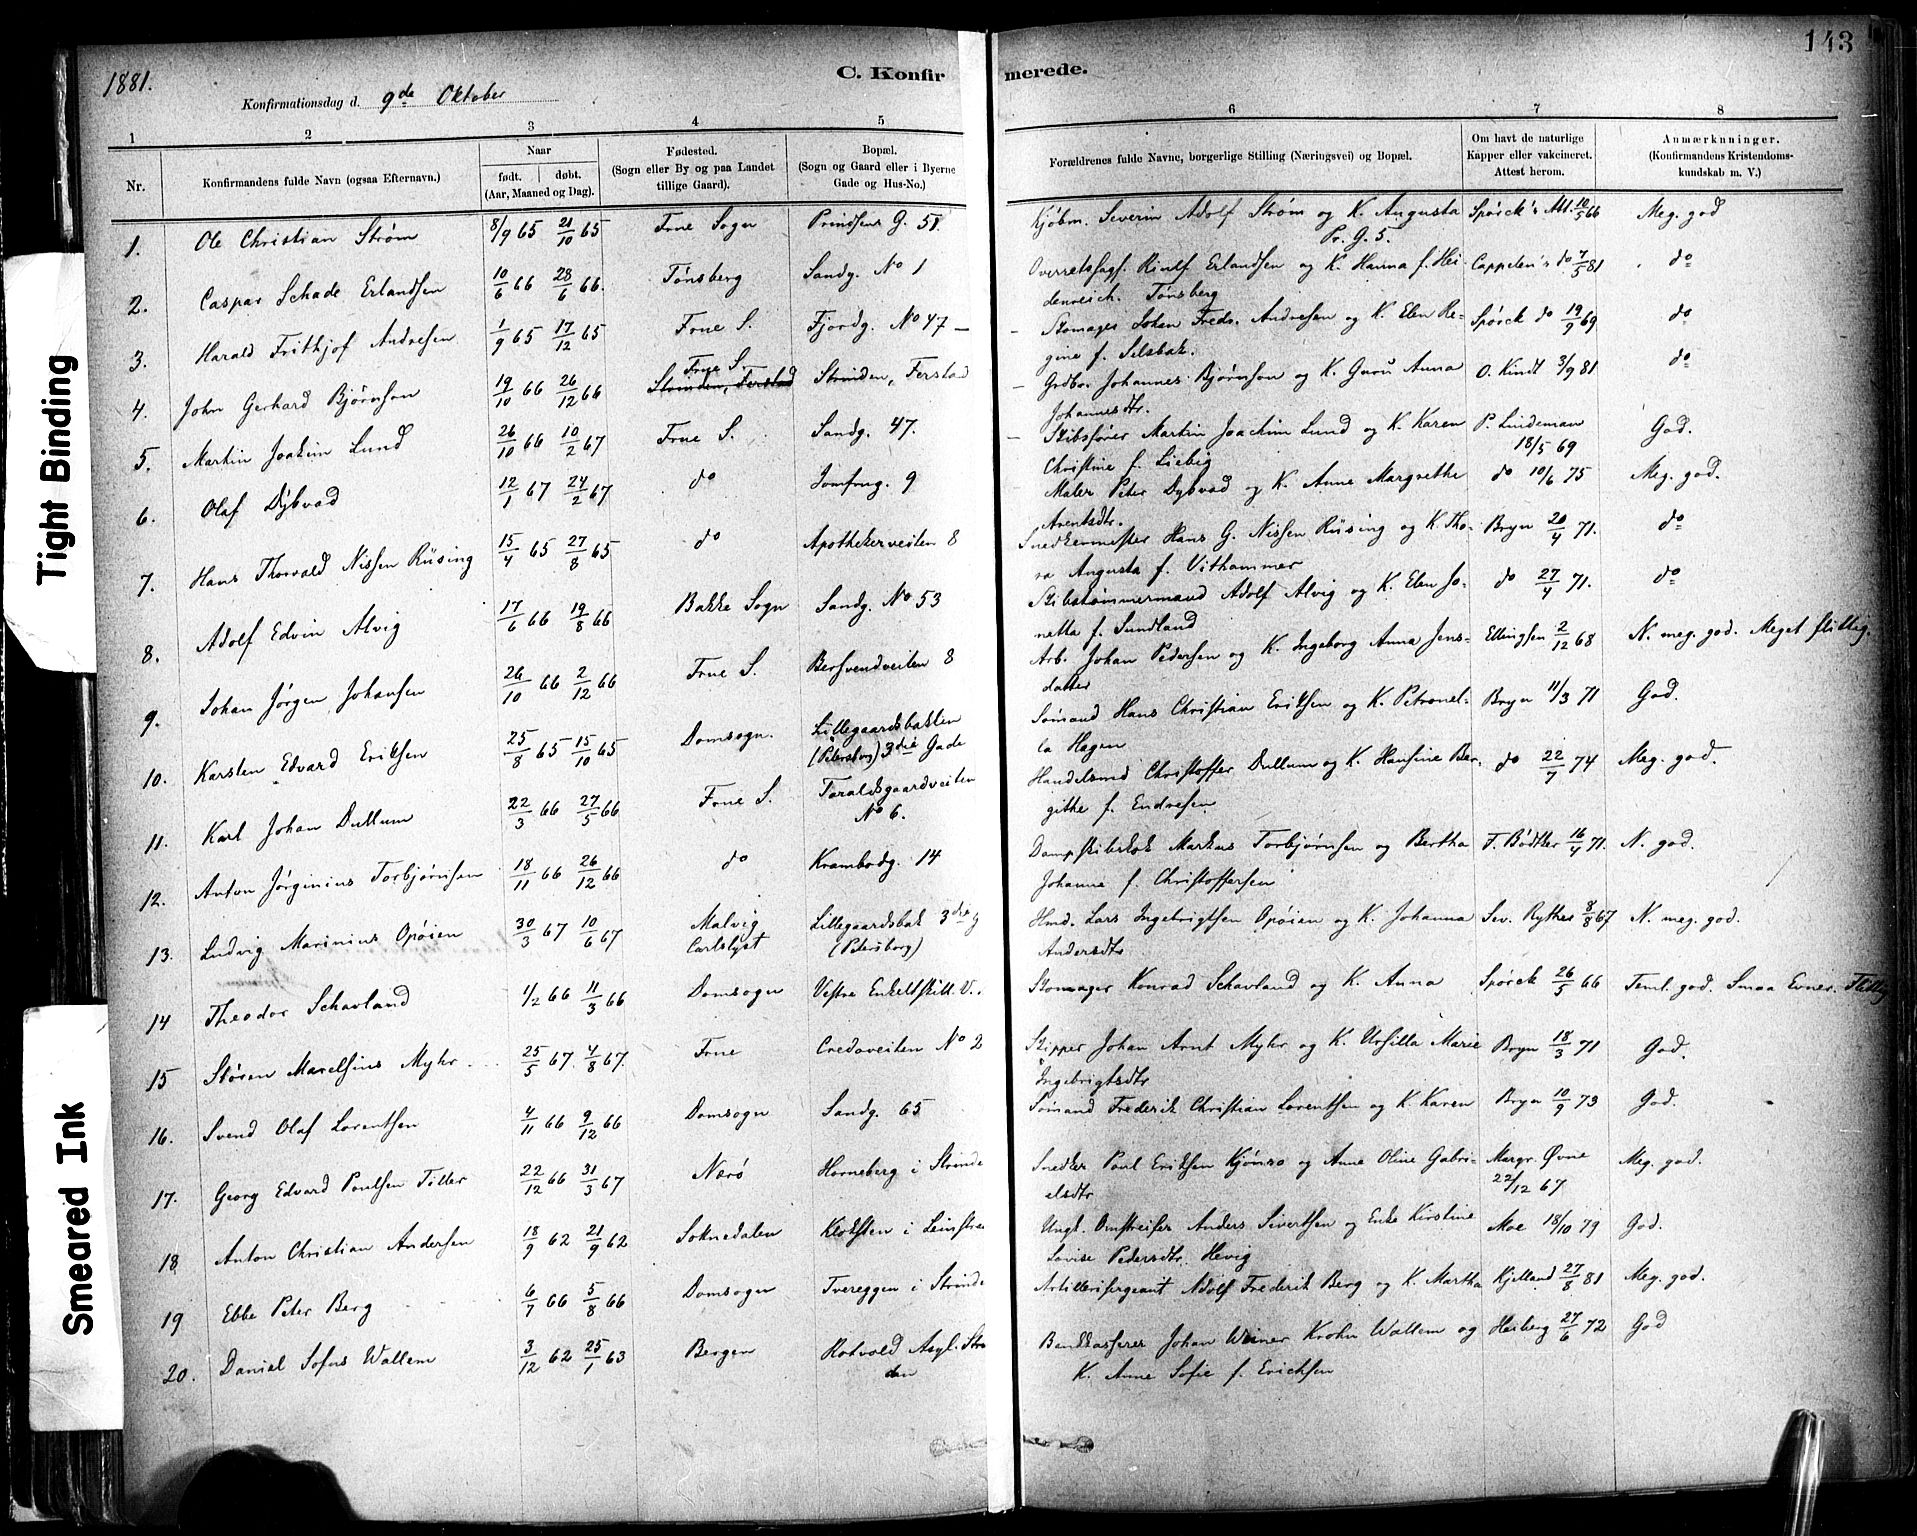 143
1881.
C. Konfir merede.
Konfirmationsdag d. 9de Oktober
1 2 3 4 5 6 7 8
Nr.
Konfirmandens fulde Navn (ogsaa Efternavn).
Naar
født. døbt.
(Aar, Maaned og Dag).
Fødested.
(Sogn eller By og paa Landet
tillige Gaard).
Bopæl.
(Sogn og Gaard eller i Byerne
Gade og Hus-No.)
Forældrenes fulde Navne, borgerlige Stilling (Næringsvei) og Bopæl.
Om havt de naturlige
Kopper eller vakcineret.
Attest herom.
Anmærkninger.
(Konfirmandens Kristendoms-
kundskab m. V.)
1. Ole Christian Strøm 8/9 65 21/10 65 Frue Sogn Prindsens G. 51. Kjøbm. Severin Adolf Strøm og K. Augusta Spørck's Att. 10/5 66 Meg. god
Pr. G. 5.
2. Caspar Schade Erlandsen 10/6 66 28/6 66. Tønsberg Sandg. No 1 Overretssagf. Rinlf Erlandsen og K. Hanna f. Hei- Cappelen's do 7/5 81 do
denreich. Tønsberg
3. Harald Frithjof Andresen 1/9 65 17/12 65 Frue S. Fjordg. No 47 – Skomager Johan Fredr. Andresen og K. Elen Re- Spørck do 19/9 69 do
gine f. Selsbak.
Frue S.
4. John Gerhard Bjørnson 19/10 66 26/12 66 Strinden, Ferstad Strinden, Ferstad Grdbr. Johannes Bjørnson og K. Guru Anna O. Kindt 3/9 81 do
Johannesdtr.
5. Martin Joakim Lund 26/10 66 10/2 67 Frue S. Sandg. 47. Skibsfører Martin Joachim Lund og K. Karen P. Lindeman God.
18/5 69
Christine f. Liebig
6. Olaf Dybvad 12/1 67 24/2 67 do Jomfrug. 9 Maler Peter Dybvad og K. Anne Margrethe do 10/6 75 Meg. god.
Arentsdtr.
7. Hans Thorvald Nissen Rüsing 15/4 65 27/8 65 do Apothekerveiten 8 Snedkermester Hans G. Nissen Rüsing og K. Tho- Bryn 20/4 71. do
ra Augusta f. Vithammer
8. Adolf Edvin Alvig 17/6 66 19/8 66 Bakke Sogn Sandg. No 53 Skibstømmermand Adolf Alvig og K. Elen Jo- do 27/4 71. do
netta f. Sundland
9. Johan Jørgen Johansen 26/10 66 2/12 66 Frue S. Bersvendveiten 8 Arb. Johan Pedersen og K. Ingeborg Anna Jens- Ellingsen 2/12 68 N. meg. god. Meget flittig.
datter
10. Karsten Edvard Eriksen 25/8 65 15/10 65 Domsogn. Lillegaardsbakken Sømand Hans Christian Eriksen og K. Petronel- Bryn 11/3 71 God.
(Petersborg) 3die Gade
la Hagen
11. Karl Johan Dullum 22/3 66 27/5 66 Frue S. Taraldsgaardveiten Handelsmd Christoffer Dullum og K. Hansine Ber- do 22/7 74 Meg. god.
No 6.
githe f. Endresen
12. Anton Jørginius Torbjørnsen 18/11 66 26/12 66 do Krambodg. 14 Dampskibskok Markus Torbjørnsen og Bertha F. Bødtker 16/4 71. N. god.
Johanna f. Christoffersen
13. Ludvig Marinius Opøien 30/3 67 10/6 67 Malvig Lillegaardsbak 3die G Hmd. Lars Ingebrigtsen Opøien og K. Johanna Sev. Rythes 8/8 67 N. meg. god.
Carlslyst (Petersborg)
Andersdtr
14 Theodor Schavland 1/2 66 11/3 66 Domsogn Vestre Enkeltskill. V. Skomager Konrad Schavland og K. Anna Spørck 26/5 66 Teml. god. Smaa Evner. Flittig
15 Støren Marelsius Myhr 25/5 67. 4/8 67. Frue Credoveiten No 2 Skipper Johan Arnt Myhr og K. Ursilla Marie Bryn 18/3 71 God.
Ingebrigtsdtr
16. Svend Olaf Lorentsen 4/11 66 9/12 66 Domsogn Sandg. 65 Sømand Frederik Christian Lorentsen og K. Karen Bryn 10/9 73 God.
17. Georg Edvard Poulsen Tiller 22/12 66 31/3 67 Nærø Horneberg i Strinde Snedker Poul Eriksen Kjønsø og Anne Oline Gabri- Margr. Øvne Meg. god.
elsdtr 22/12 67
18 Anton Christian Andersen 18/9 62 21/9 62 Soknedalen Kloksten i Leinstre Ungk. Omstreifer Anders Sivertsen og Enke Kirstine Moe 18/10 79 God.
Lovise Pedersdtr. Hevig
19 Ebbe Peter Berg 6/7 66 5/8 66 Domsogn Tvereggen i Strinde Artillerisergeant Adolf Frederik Berg og K. Martha Kjelland 27/8 81 Meg. god.
20. Daniel Sofus Wallem 3/12 62 25/1 63 Bergen Rotvold Asyl. Strin Bankkasserer Johan Weiner Krohn Wallem og Heiberg 27/6 72 God
den K. Anne Sofie f. Erichsen
Tight Binding
Smeared Ink